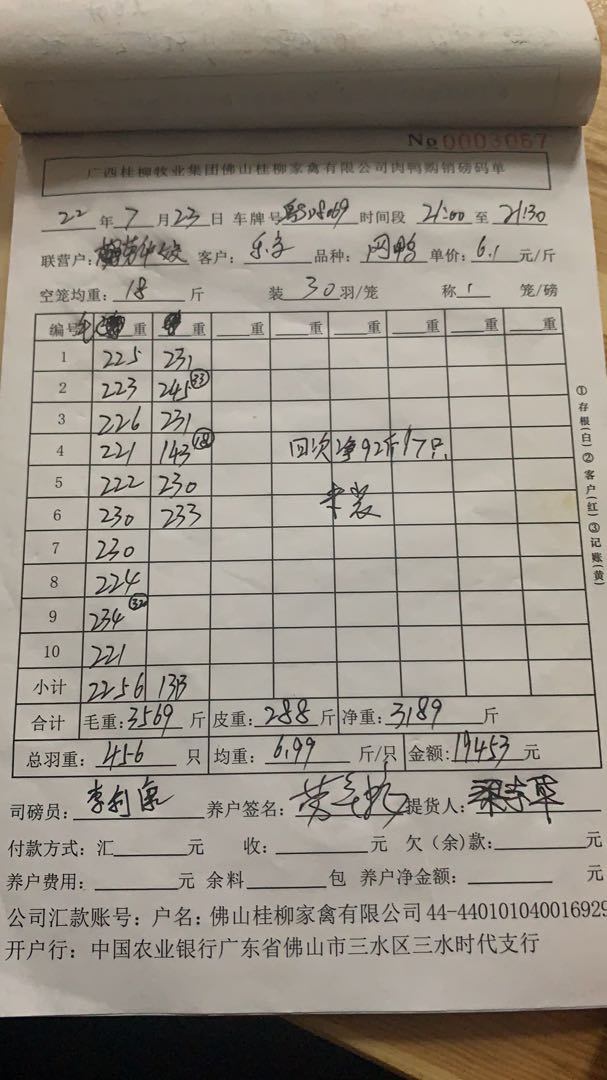 No 0003067
广西桂柳牧业集团佛山桂柳家禽有限公司肉鸭购销磅码单
22 年 7 月 23 日 车牌号 时间段 21:00 至 21:30
联营户: 客户: 乐字 品种: 网鸭 单价: 6.1 元/斤
空笼均重: 18 斤 装 30 羽/笼 称 1 笼/磅
编号 毛 重 重 重 重 重 重 重 重
1 225 231
2 223 245 (33)
3 226 231
4 221 143 (18) 回次净92斤17只
5 222 230
6 230 233 未装
7 230
8 224
9 234 (32)
10 221
小计 2256 1313
合计 毛重: 3569 斤 皮重: 288 斤 净重: 3189 斤
总羽重: 456 只 均重: 6.99 斤/只 金额: 19453 元
司磅员: 李利 养户签名: 提货人:
付款方式: 汇 元 收: 元 欠(余)款: 元
养户费用: 元 余料 包 养户净金额: 元
公司汇款账号: 户名: 佛山桂柳家禽有限公司 44-440101040016929
开户行: 中国农业银行广东省佛山市三水区三水时代支行
①存根(白)②客户(红)③记账(黄)